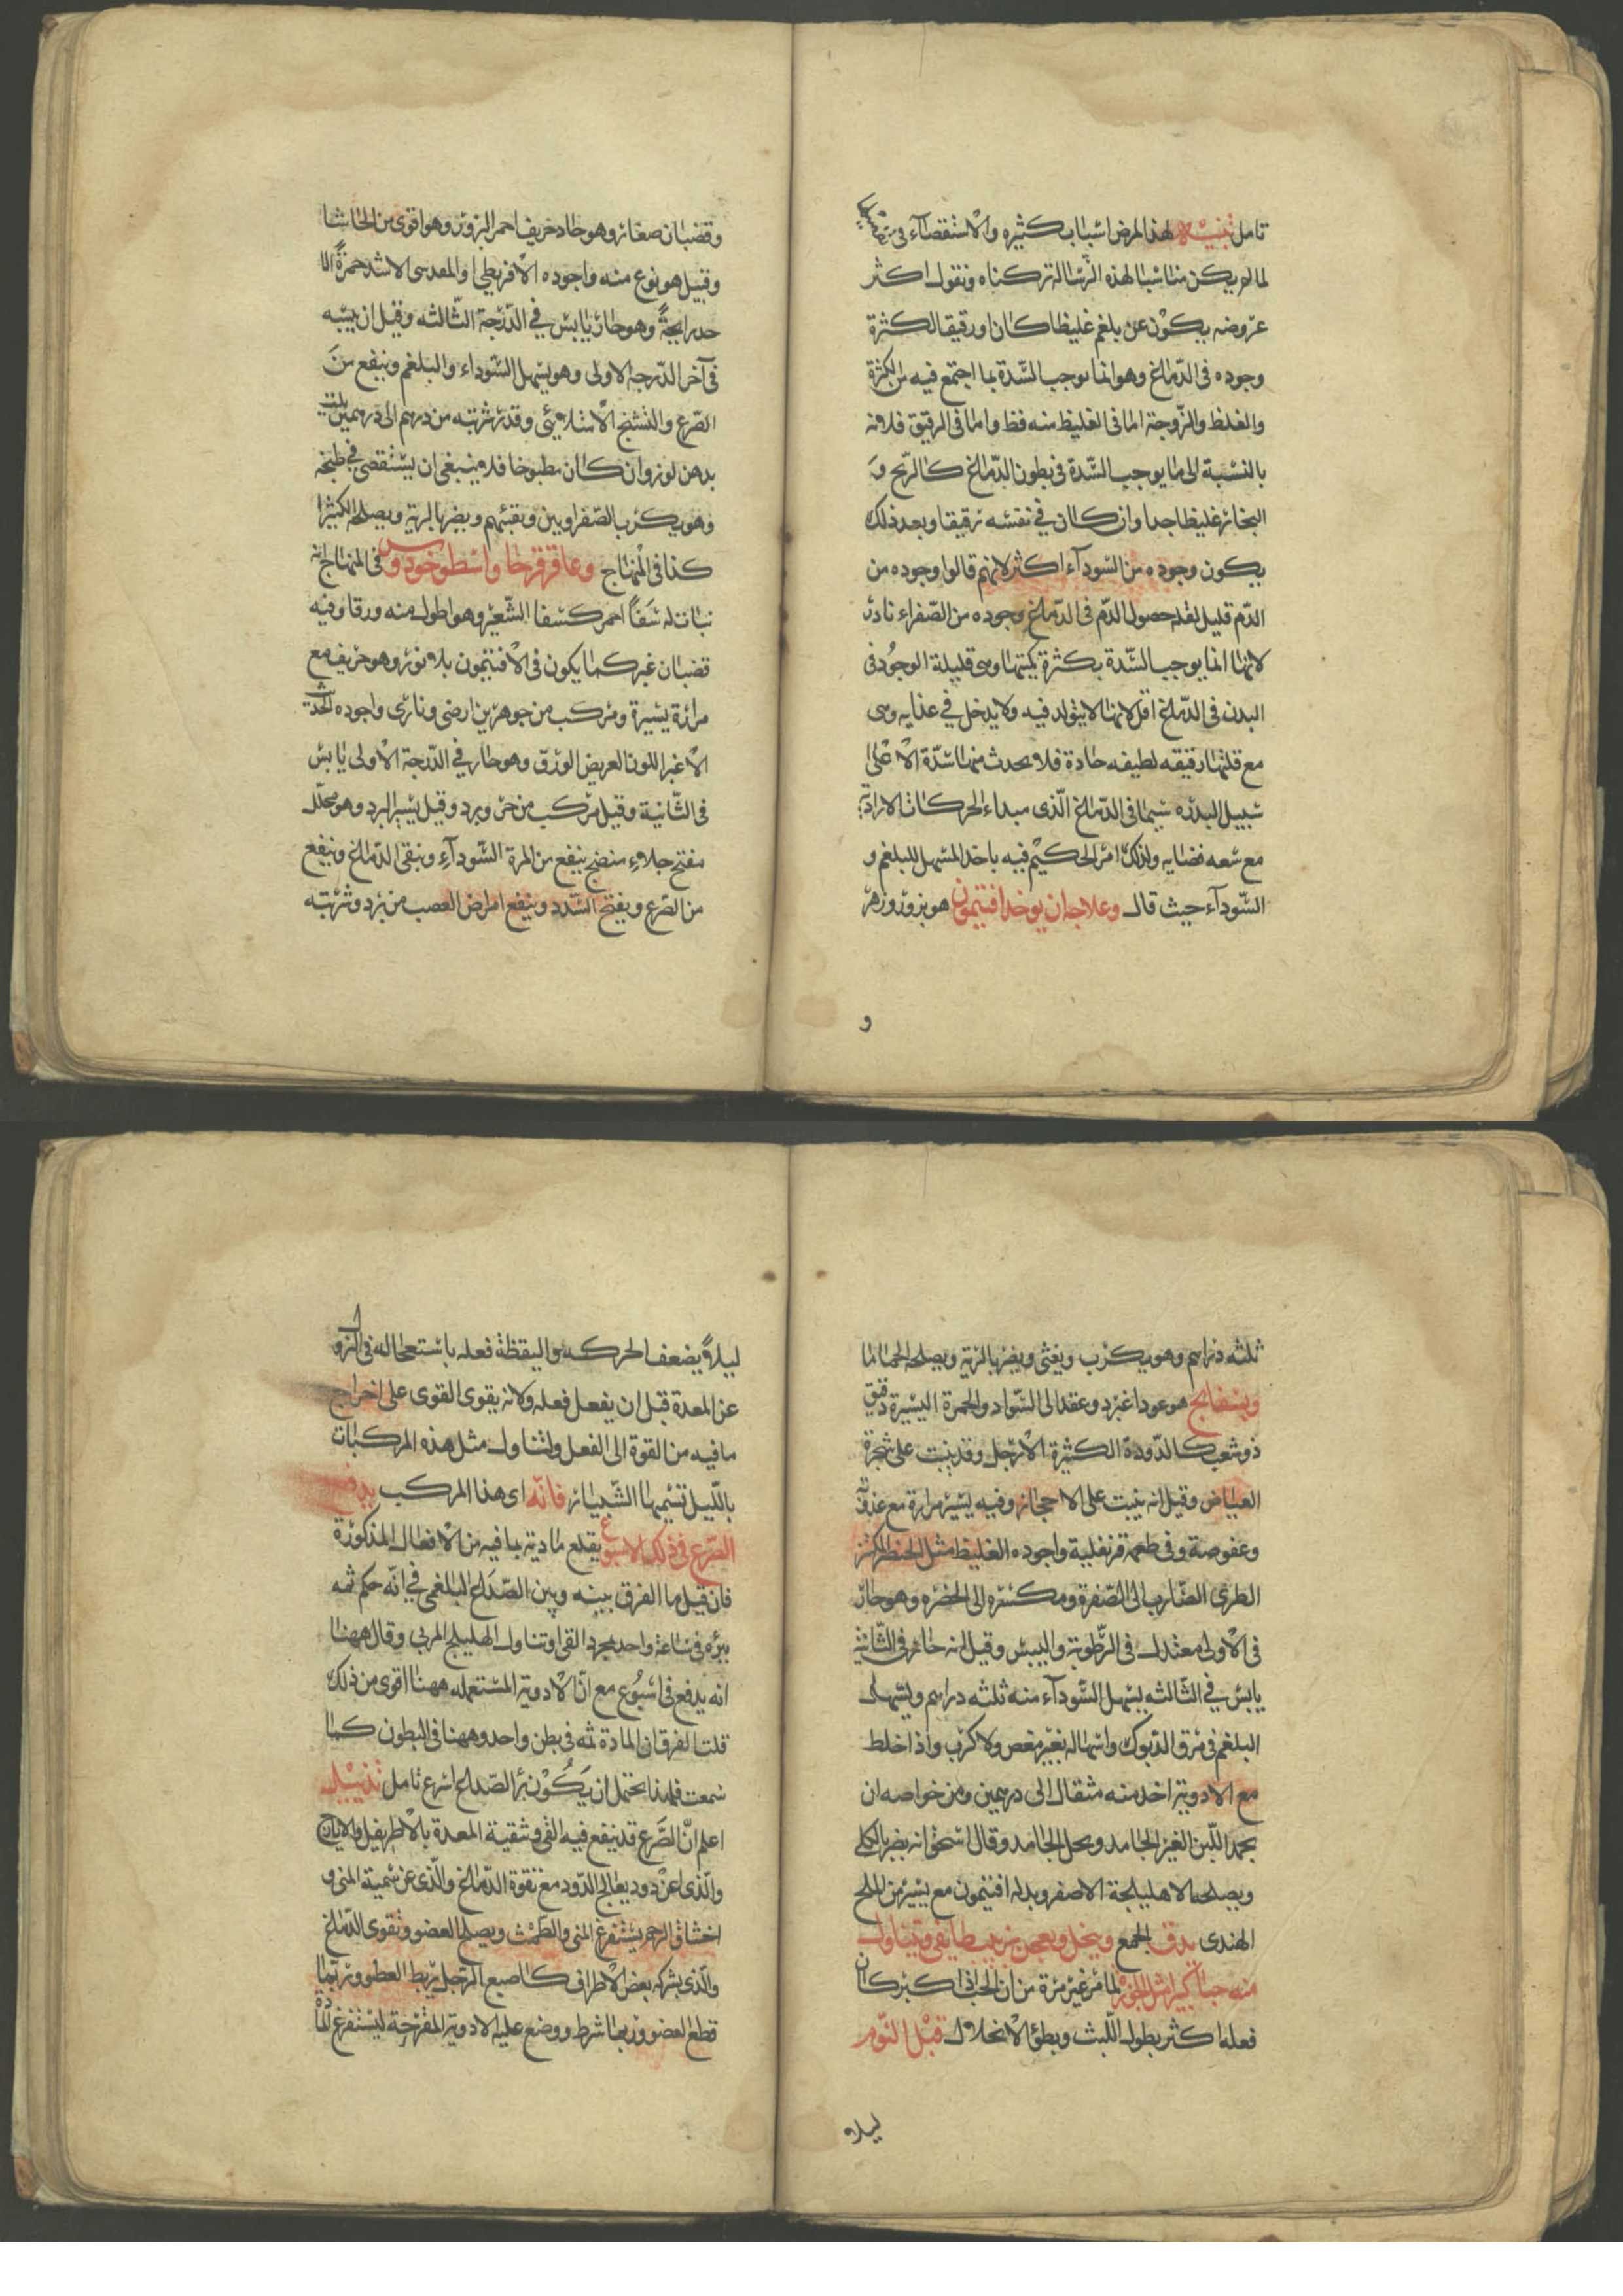 تامل تنبيه لهذا المرض اسباب كثيره والاستقصاء فى
لما لم يكن مناسبا لهذه الرسالة تركناه ونقول اكثر
عروضه يكون عن بلغم غليظا كان او رقيقا لكثرة
وجوده فى الدماغ وهو انما يوجب السّدة بما اجتمع فيه من الكثرة
والغلظ والزوجة اما فى الغليظ منه فقط واما فى الرقيق فلانه
بالنسبة الى ما يوجب السّدة فى بطون الدّماغ كالرّيح و
البخار غليظا جدا وان كان في نفسه رقيقا وبعد ذلك
يكون وجوده من السّوداء اكثر لانهم قالوا وجوده من
الدّم قليل لقلة حصول الدّم فى الدّماغ وجوده من الصّفراء نادر
لانها انما يوجب السّدة بكثرة كميتها وهى قليلة الوجود فى
البدن فى الدّماغ اقل لانها لا يتولد فيه ولا يدخل في غذايه وهى
مع قلتها رقيقه لطيفه حادة فلا يحدث منها سدّة الا على
سبيل الندره سيما فى الدّماغ الّذى مبداء الحركات الارادية
مع سعه فضايه ولذلك امر الحكيم فيه باخذ المسهل للبلغم و
السّوداء حيث قال وعلاجه ان يوخذ افتيمون هو بزور وزهر
و
وقضبان صغار وهو حاد حريف احمر البزور وهو اقوى من الحاشا
وقيل هو نوع منه واجوده الاقريطي او المقدسى الاشد حمرةً الا
حد رايحةً وهو حار يابس في الدّرجة الثّالثه وقيل ان يبسه
فى آخر الدّرجة الاولى وهو يسهل السّوداء والبلغم وينفع من
الصّرع والتشنج الامتلائي وقدر شربته من درهم الى درهمين يلت
بدهن لوز وان كان مطبوخا فلا ينبغى ان يستقصى في طبخه
وهو يكرب الصّفراويين ويقئهم ويضر بالرية ويصلحه الكثيرا
كذا فى المنهاج وعاقرقرحا واسطوخودوس فى المنهاج انه
نبات له سَفًا احمر كسفا الشّعير وهو اطول منه ورقا وفيه
قضبان غبر كما يكون فى الافتيمون بلا نور وهو حريف مع
مرارة يسيرة ومركب من جوهرين ارضى ونارى واجوده الحديث
الاغبر اللون العريض الورق وهو حار في الدّرجة الاولى يابس
فى الثّانية وقيل مركب من حر وبرد وقيل يسير البرد وهو محلّل
مفتح جلاء منضج ينفع من المرة السّوداء وينقى الدّماغ وينفع
من الصّرع ويفتح السّدد وينفع امراض العصب من برد وشربته
ثلثه دراهم وهو يكرب ويغثى ويضر بالرية ويصلحه الحماما
وبسفايج هو عود اغبر ذو عقد الى السّواد والحمرة اليسيرة دقيق
ذو شعب كالدّودة الكثيرة الارجل وقد ينبت على شجرة
الغياض وقيل انه ينبت على الاحجار وفيه يسير مرارة مع عذوبة
وعفوصة وفى طعمه قرنفلية واجوده الغليظ مثل الخنصر المكتنز
الطرى الضارب الى الصّفرة ومكسره الى الخضره وهو حار
فى الاولى معتدل فى الرّطوبة واليبس وقيل انه حار فى الثّانية
يابس في الثالثه يسهل السّوداء منه ثلثه دراهم ويسهل
البلغم فى مرق الدّيوك واسهاله بغير مغص ولا كرب واذا خلط
مع الادوية اخذ منه مثقال الى درهمين ومن خواصه ان
يجمد اللّبن الغير الجامد ويحل الجامد وقال اسحق انه يضر بالكلى
ويصلحه الاهليلجة الاصفر وبدله افتيمون مع يسير من الملح
الهندى يدق الجمع وينخل ويعجن بزبيب طايفى ويتناول
منه حبا كبيرا مثل الجوز لما مر غير مرة من ان الحب اذا كبر كان
فعله اكثر بطول اللّبث وبطؤ الانحلال قبل النّوم
ليلا
ليلاً يضعف الحركه واليقظة فعله باستعجاله فى النزو
عن المعدة قبل ان يفعل فعله ولانه يقوى القوى على اخراج
ما فيه من القوة الى الفعل ولتناول مثل هذه المركبات
باللّيل تسميها الشّبيار فانّه اى هذا المركب يدفع
الصّرع فى ذلك الاسبوع يقلع مادته بما فيه من الافعال المذكورة
فان قيل ما الفرق بينه وبين الصّداع البلغمى في انّه حكم ثمه
ببرؤه فى ساعة واحد بمجرد القى او تناول الهليلج المربى وقال ههنا
انه يدفع فى اسبُوع مع انّ الادوية المستعمله ههنا اقوى من ذلك
قلت الفرق ان المادة ثمه فى بطن واحد وههنا فى البطون كما
سمعت فلهذا يحتمل ان يكون برأ الصّداع اسرع تامل تذنيبل
اعلم انّ الصّرع قد ينفع فيه القى وتنقية المعدة بالاطريفل والايارج
والّذى عن دود يعالج الدّود مع تقوة الدّماغ والّذى عن سمية المنى و
اختناق الرحم يستفرغ المنى والطمث ويصلح العضو وتقوى الدّماغ
والّذى بشركه بعض الاطراف كاصبع الرّجل يربط العضو وربما
قطع العضو وربما شرط ووضع عليه الادوية المقرّحة ليستفرغ المادة